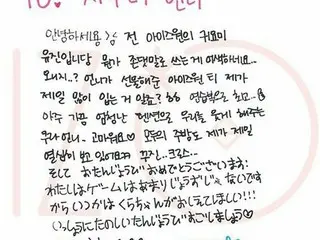 안녕하세욤 전 아이즈원의 귀요미
유진입니당 뭔가 존댓말로 쓰는 게 어색하네요...
왜지..? 언니가 선물해준 아이즈원 티 제가
제일 많이 입는 거 알죠? ㅎㅎ
아주 가끔 엄청난 텐션으로 우리를 웃게 해주는
우리 언니.. 고마워요♡ 오늘의 주방도 제가 제일
열심히 보고 있어요ㅋㅋ 꾸진..크로스..
そして おたんじょうび おめでとうございます!
わたしはゲームは あまり じょうずじゃないです
からいつか くらちゃんが おしえてほしい!!!
いっしょにたのしいたんじょうび すごしましょう♡